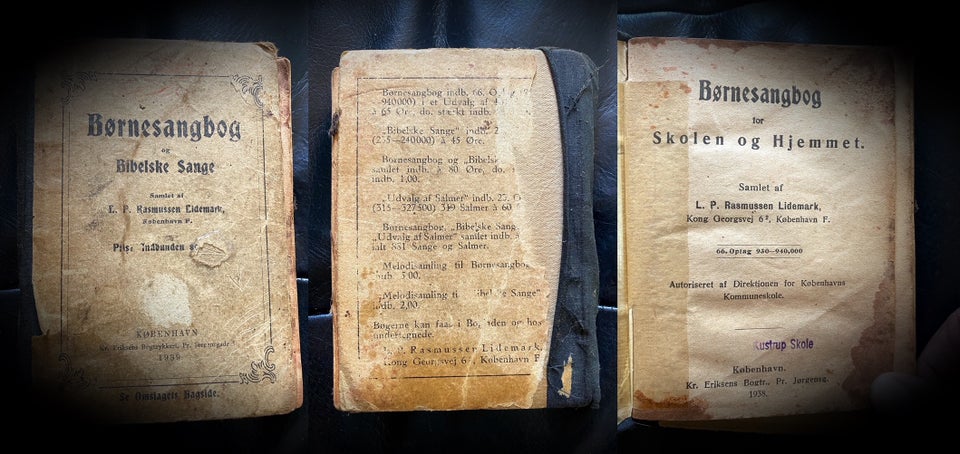 Børnesangbog
og
Bibelske Sange
Samlet af
L. P. Rasmussen Lidemark,
København F.
Pris: Indbunden
KØBENHAVN
Kr. Eriksens Bogtrykkeri, Pr. Jørgensgade
1939
Se Omslagets Bagside.
Børnesangbog indb. 66. Opl
940000) i et Udvalg af
à 65 Øre, do. stærkt indb.
„Bibelske Sange" indb. 2
(235—240000) à 45 Øre.
Børnesangbog og „Bibelsk
samlet indb. à 80 Øre, do.
indb. 1,00.
„Udvalg af Salmer" indb. 27. O
(315—327500) 319 Salmer à 60
Børnesangbog, „Bibelske Sang
„Udvalg af Salmer" samlet indb.
ialt 831 Sange og Salmer.
Melodisamling til Børnesangbog
indb. 5,00.
„Melodisamling til Bibelske Sange"
indb. 2,00.
Bøgerne kan faas i Bogladen og hos
undertegnede.
L. P. Rasmussen Lidemark,
Kong Georgsvej 6², København F
Børnesangbog
for
Skolen og Hjemmet.
Samlet af
L. P. Rasmussen Lidemark,
Kong Georgsvej 6², København F.
66. Oplag 930—940,000
Autoriseret af Direktionen for Københavns
Kommuneskole.
Kustrup Skole
København.
Kr. Eriksens Bogtr., Pr. Jørgensg.
1938.